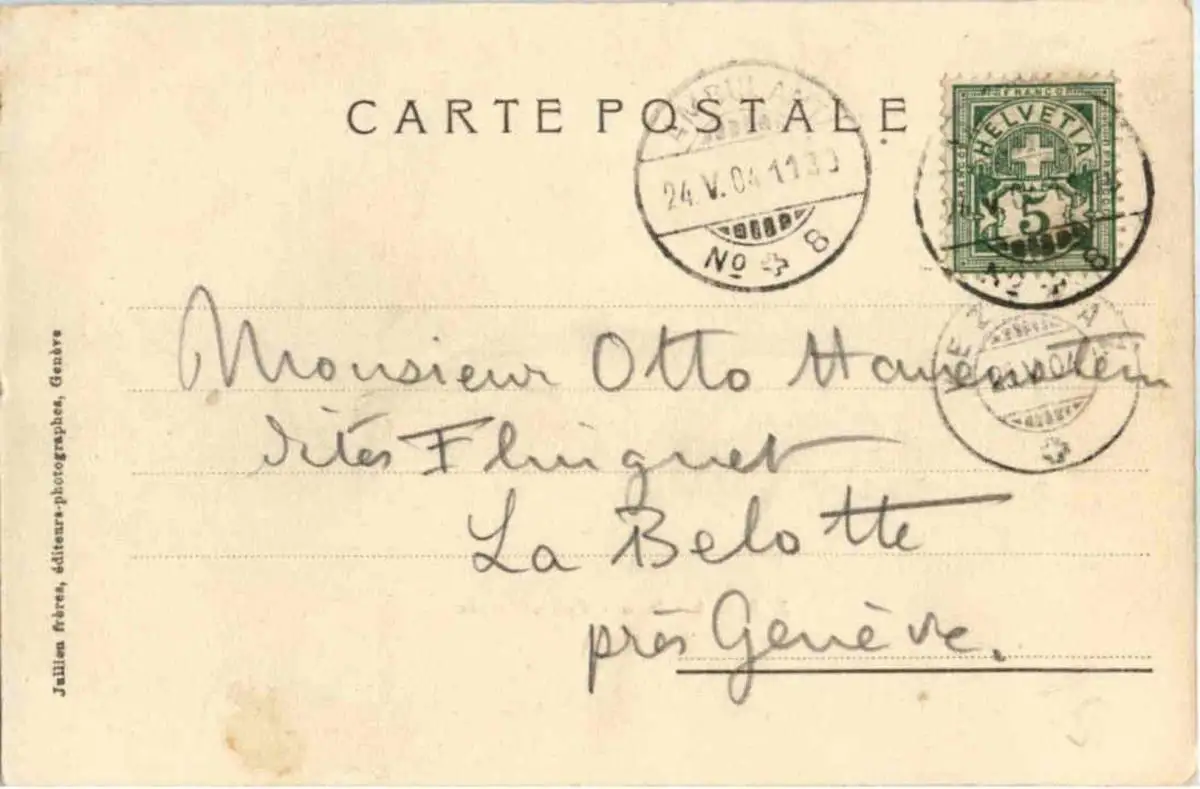 CARTE POSTALE
AMBULANT
24.V.04 11 30
No 8
FRANCO
HELVETIA
5
No 8
Monsieur Otto Hauenstein
Flinguet
La Belotte
près Genève.
Jullien frères, éditeurs-photographes, Genève